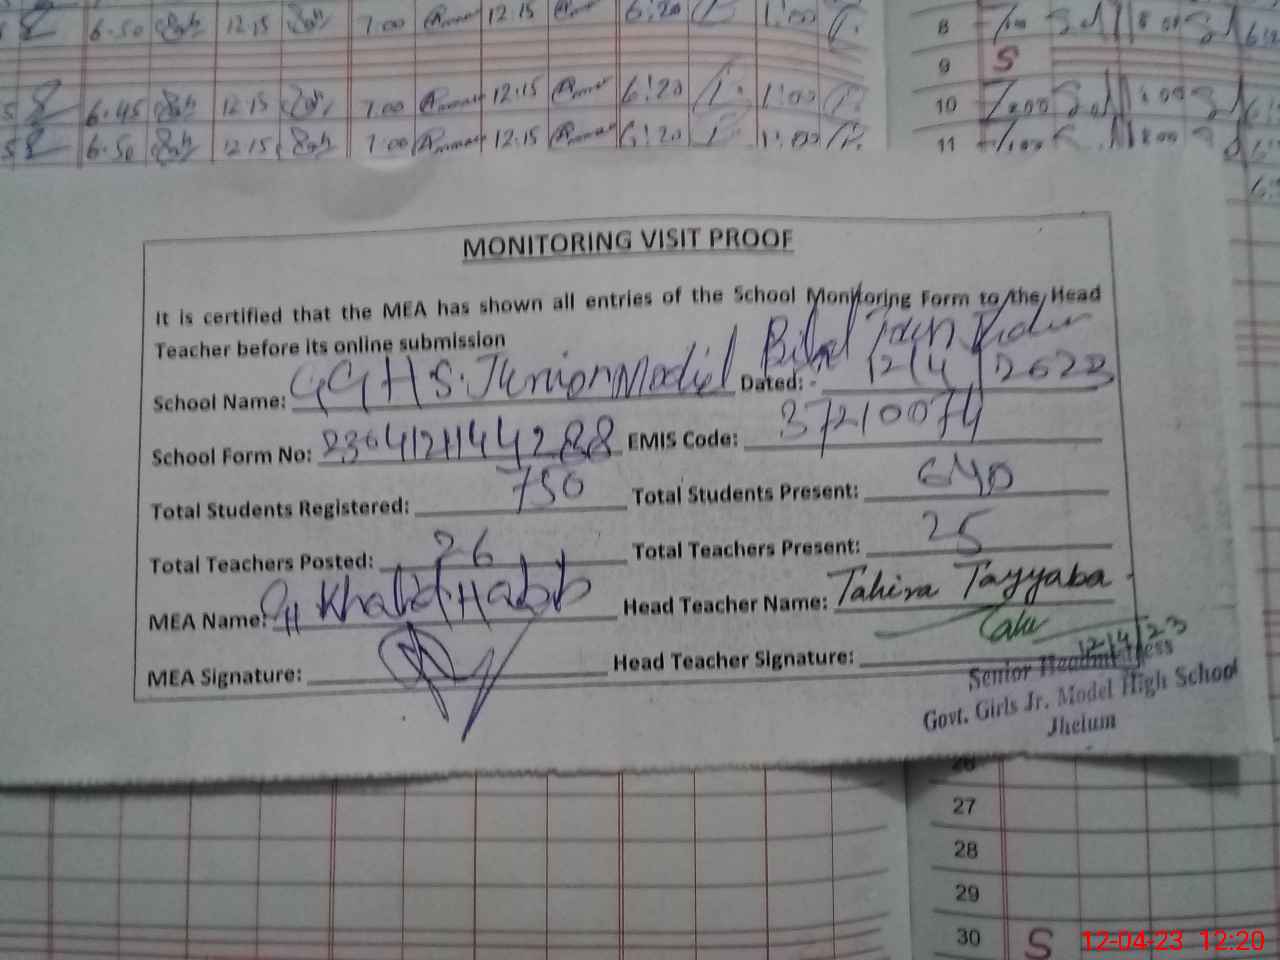 6.50 12.15 7.00 12.15 6:20 1:00
8
9 S
6.45 12.15 7.00 12.15 6:20 1:00
10
6.50 12.15 7.00 12.15 6:20 1:00
11
MONITORING VISIT PROOF
It is certified that the MEA has shown all entries of the School Monitoring Form to the Head
Teacher before its online submission
School Name: GGHS. Junior Model Bilal Town Jhelum Dated: - 12/4/2023
School Form No: EMIS Code: 37210074
Total Students Registered: 750 Total Students Present: 640
Total Teachers Posted: 26 Total Teachers Present: 25
MEA Name: Khalid Habib Head Teacher Name: Tahira Tayyaba
MEA Signature: Head Teacher Signature:
12/4/23
Senior Headmistress
Govt. Girls Jr. Model High School
Jhelum
26
27
28
29
30 S
12-04-23 12:20